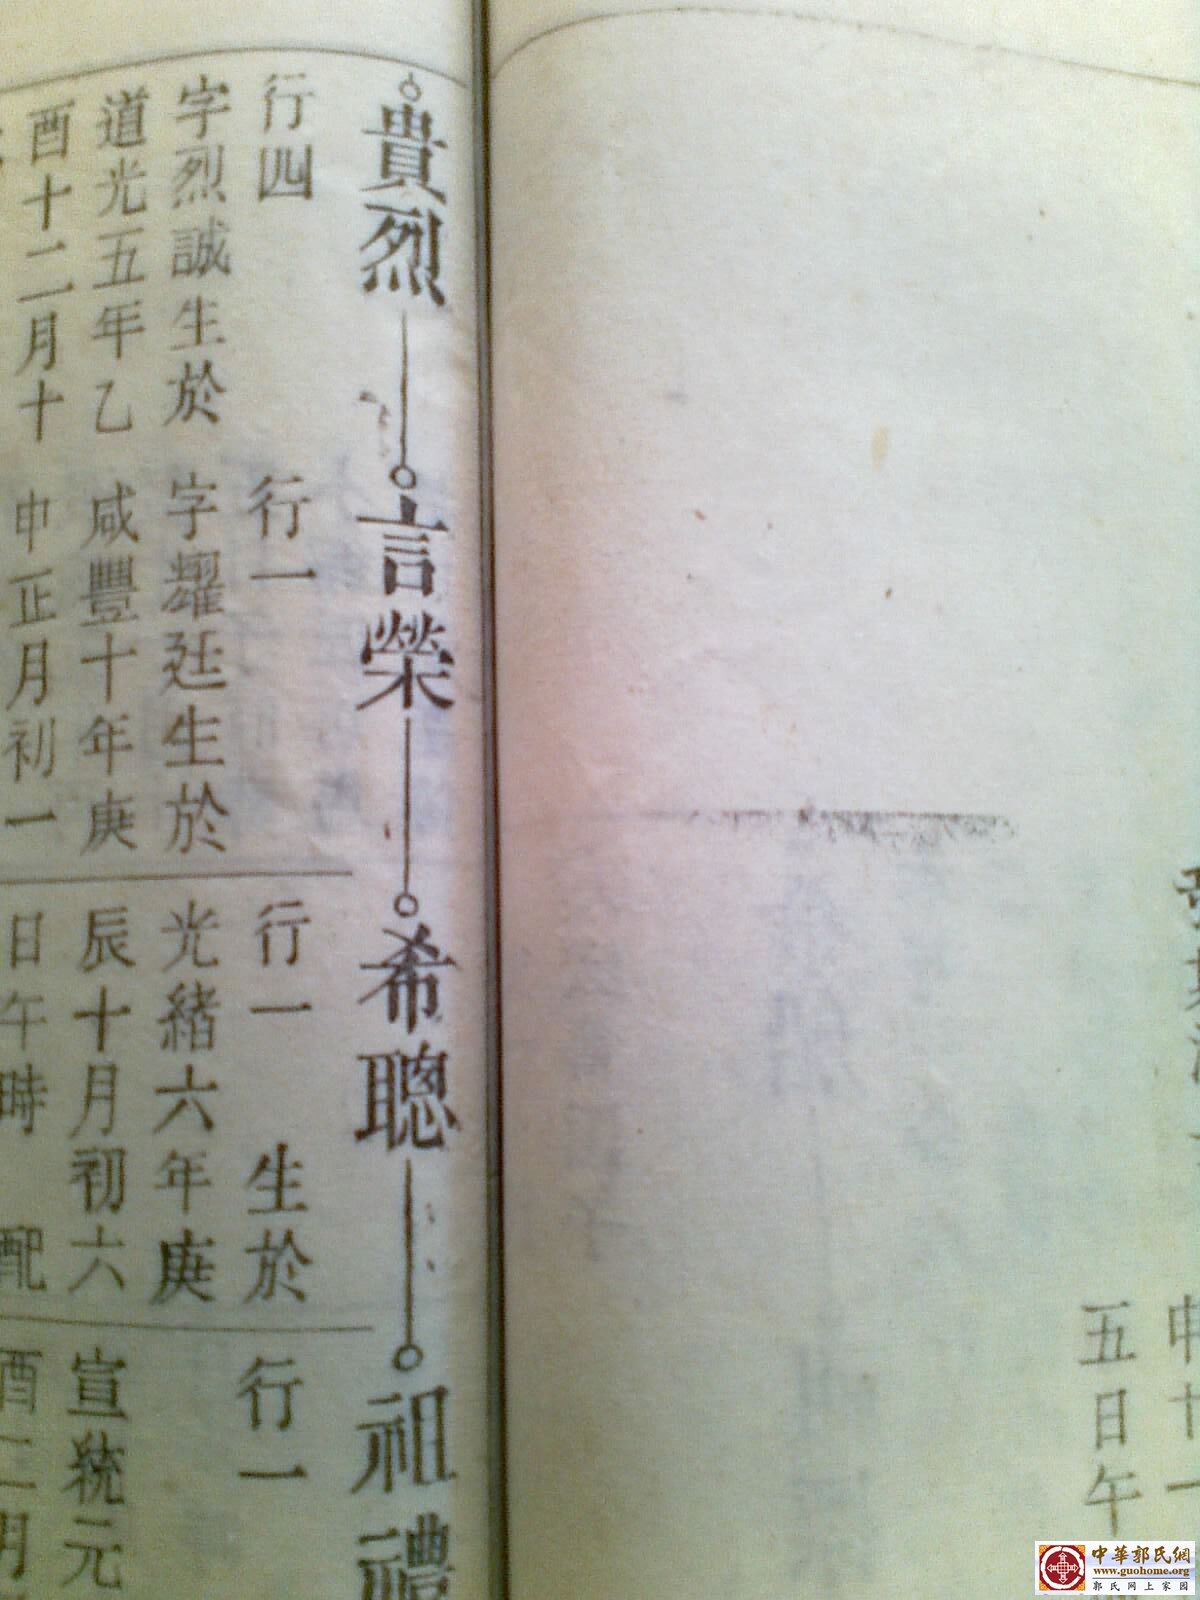 貴烈
行四
字烈誠生於
道光五年乙
酉十二月十
言榮
行一
字耀廷生於
咸豐十年庚
申正月初一
希聰
行一 生於
光緒六年庚
辰十月初六
日午時 配
祖禮
行一
宣統元
酉二月
五日午
中華郭氏網
www.guohome.org
郭氏网上家园